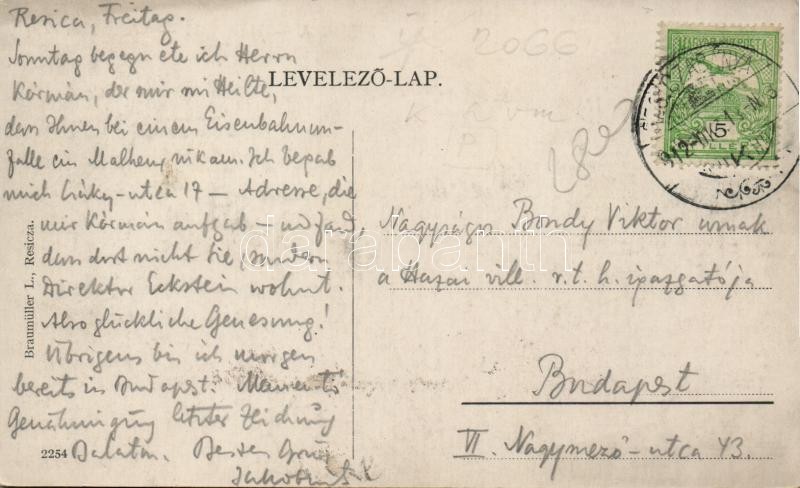 Resica, Freitag.
Sonntag begegnete ich Herrn
Kármán, der mir mitteilte,
dass Ihnen bei einem Eisenbahnun-
falle ein Malheur nikam. Ich begab
mich Csáky-utca 17 — Adresse, die
mir Kármán aufgab — und fand,
dass dort nicht Sie, sondern
Direktor Eckstein wohnt.
Also glückliche Genesung!
Übrigens bin ich morgen
bereits in Budapest.
Genehmigung letzter Zeichnung
Balaton. Besten Gruss
LEVELEZŐ-LAP.
2066
MAGYAR KIR. POSTA
5
912
Nagyságos Bondy Viktor urnak
a Hazai vill. r.t. h. igazgatója
Budapest
VI. Nagymező-utca 43.
Braumüller L., Resicza.
2254
darabanth